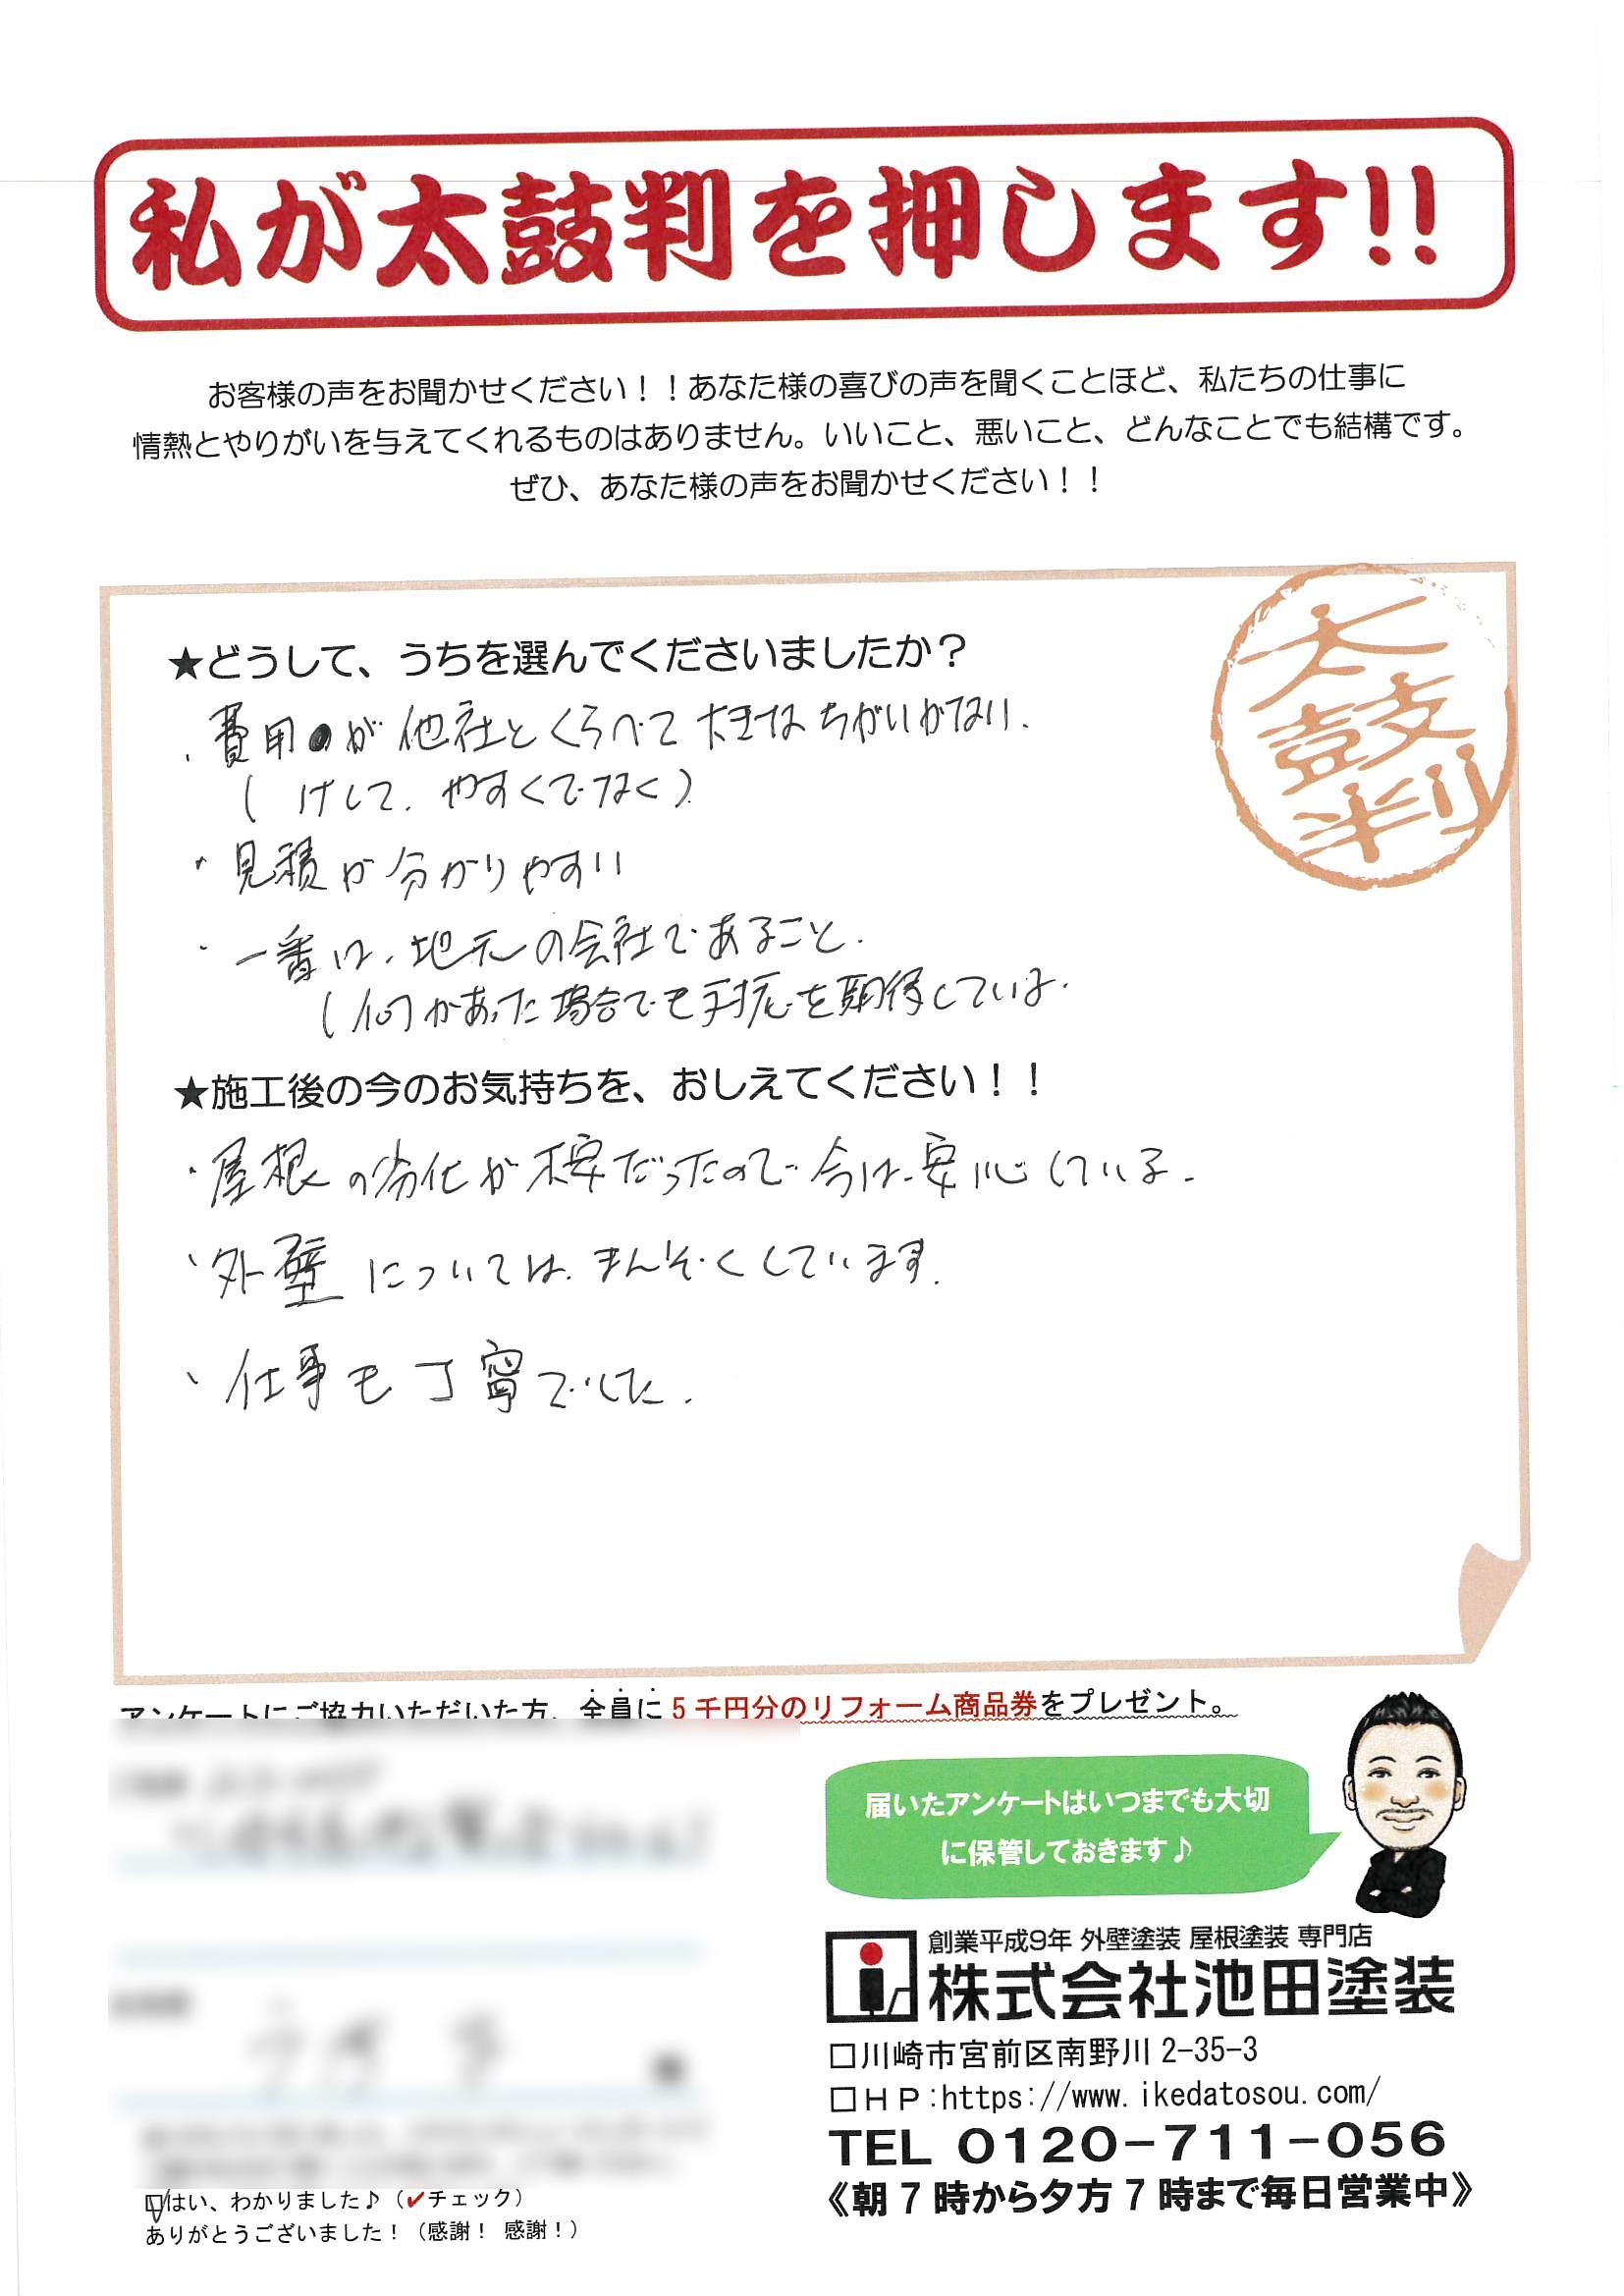 私が太鼓判を押します!!
お客様の声をお聞かせください！！あなた様の喜びの声を聞くことほど、私たちの仕事に
情熱とやりがいを与えてくれるものはありません。いいこと、悪いこと、どんなことでも結構です。
ぜひ、あなた様の声をお聞かせください！！
太鼓判
★どうして、うちを選んでくださいましたか？
・費用が他社とくらべて大きなちがいがない.
(けして、やすくでなく)
・見積が分かりやすい
・一番は、地元の会社であること.
(何かあった場合でも対応を期待している.
★施工後の今のお気持ちを、おしえてください！！
・屋根の劣化が不安だったので今は、安心している.
・外壁については、まんぞくしています.
・仕事も丁寧でした.
アンケートにご協力いただいた方、全員に５千円分のリフォーム商品券をプレゼント。
届いたアンケートはいつまでも大切
に保管しておきます♪
創業平成9年 外壁塗装 屋根塗装 専門店
株式会社池田塗装
□川崎市宮前区南野川 2-35-3
□ＨＰ:https://www.ikedatosou.com/
TEL 0120-711-056
《朝７時から夕方７時まで毎日営業中》
□はい、わかりました♪（✔チェック）
ありがとうございました！（感謝！ 感謝！）